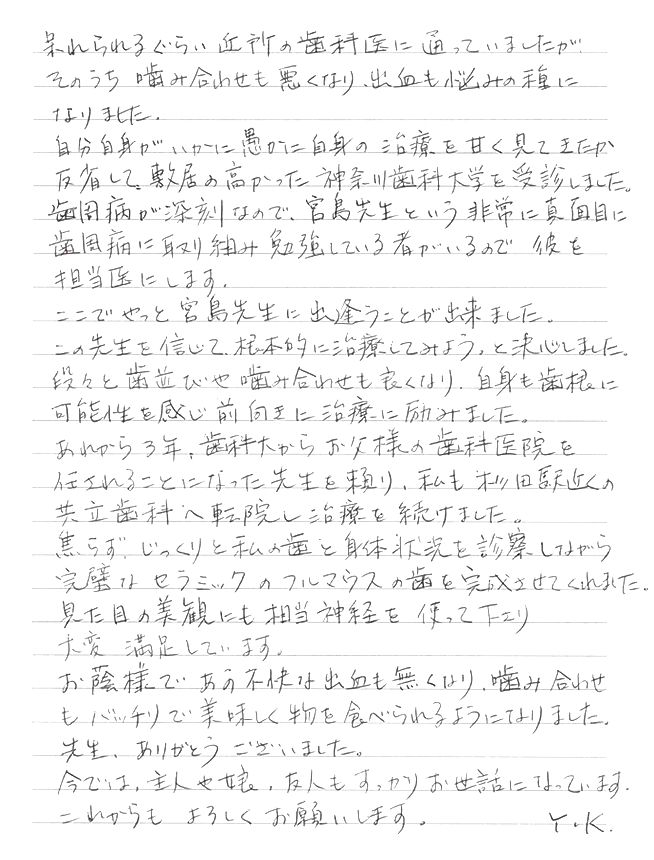 呆れられるぐらい近所の歯科医に通っていましたが
そのうち噛み合わせも悪くなり、出血も悩みの種に
なりました。
自分自身がいかに愚かに自身の治療を甘く見てきたか
反省して、敷居の高かった神奈川歯科大学を受診しました。
歯周病が深刻なので、宮島先生という非常に真面目に
歯周病に取り組み勉強している者がいるので彼を
担当医にします。
ここでやっと宮島先生に出逢うことが出来ました。
この先生を信じて、根本的に治療してみよう、と決心しました。
段々と歯並びや噛み合わせも良くなり、自身も歯根に
可能性を感じ前向きに治療に励みました。
あれから3年、歯科大からお父様の歯科医院を
任されることになった先生を頼り、私も杉田駅近くの
共立歯科へ転院し治療を続けました。
焦らず、じっくりと私の歯と身体状況を診察しながら
完璧なセラミックのフルマウスの歯を完成させてくれました。
見た目の美観にも相当神経を使って下さり
大変満足しています。
お蔭様であの不快な出血も無くなり、噛み合わせ
もバッチリで美味しく物を食べられるようになりました。
先生、ありがとうございました。
今では、主人や娘、友人もすっかりお世話になっています。
これからもよろしくお願いします。 Y・K.